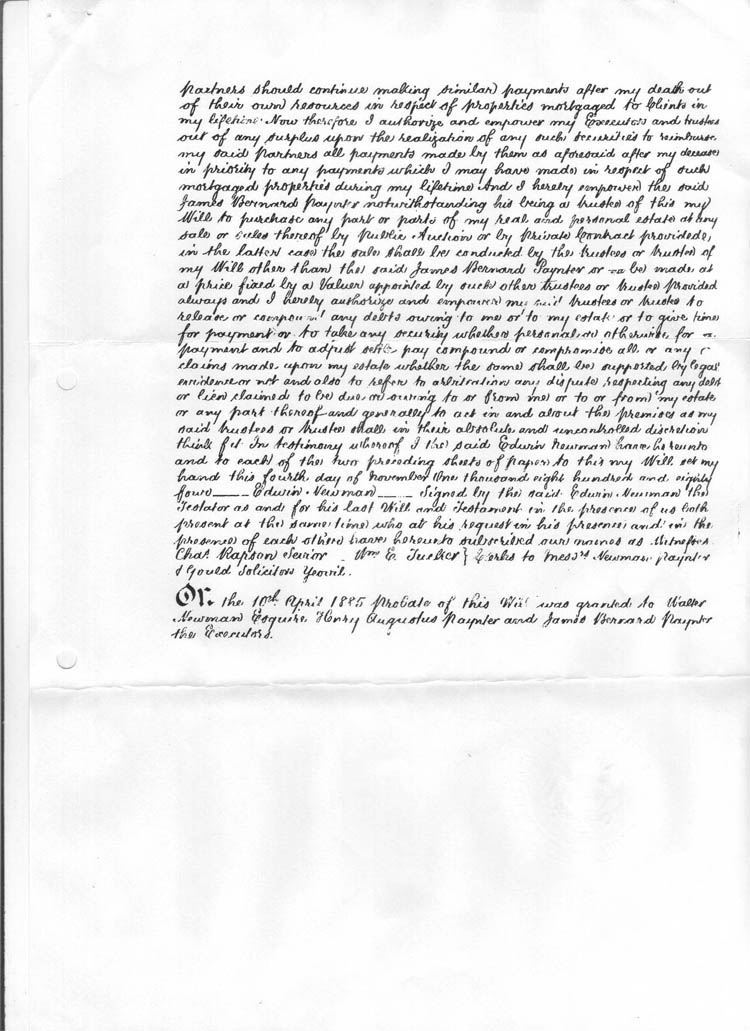 Partners should continue making similar payments after my death out
of their own resources in respect of properties mortgaged to Clients in
my lifetime Now therefore I authorize and empower my Executors and trustees
out of any surplus upon the realization of any such securities to reimburse
my said Partners all payments made by them as aforesaid after my decease
in priority to any payments which I may have made in respect of such
mortgaged properties during my lifetime And I hereby empower the said
James Bernard Paynter notwithstanding his being a trustee of this my
Will to purchase any part or parts of my real and personal estate at any
sale or sales thereof by Public Auction or by Private Contract provided
in the latter case the sale shall be conducted by the trustees or trustee of
my Will other than the said James Bernard Paynter or be made at
a price fixed by a Valuer appointed by such other trustees or trustee Provided
always and I hereby authorize and empower my said trustees or trustee to
release or compound any debts owing to me or to my estate or to give time
for payment or to take any security whether personal or otherwise for
payment and to adjust settle pay compound or compromise all or any
claims made upon my estate whether the same shall be supported by legal
evidence or not and also to refer to arbitration any dispute respecting any debt
or lien claimed to be due or owing to or from me or to or from my estate
or any part thereof and generally to act in and about the premises as my
said trustees or trustee shall in their absolute and uncontrolled discretion
think fit In testimony whereof I the said Edwin Newman have hereunto
and to each of the two preceding sheets of paper to this my Will set my
hand this fourth day of November One thousand eight hundred and eighty
four — Edwin Newman — Signed by the said Edwin Newman the
Testator as and for his last Will and Testament in the presence of us both
present at the same time who at his request in his presence and in the
presence of each other have hereunto subscribed our names as Witnesses
Chas. Rapson Senior - Wm E. Tucker } Clerks to Messrs Newman Paynter
& Gould Solicitors Yeovil.
On the 10th April 1885 Probate of this Will was granted to Walter
Newman Esquire Henry Augustus Paynter and James Bernard Paynter
the Executors.